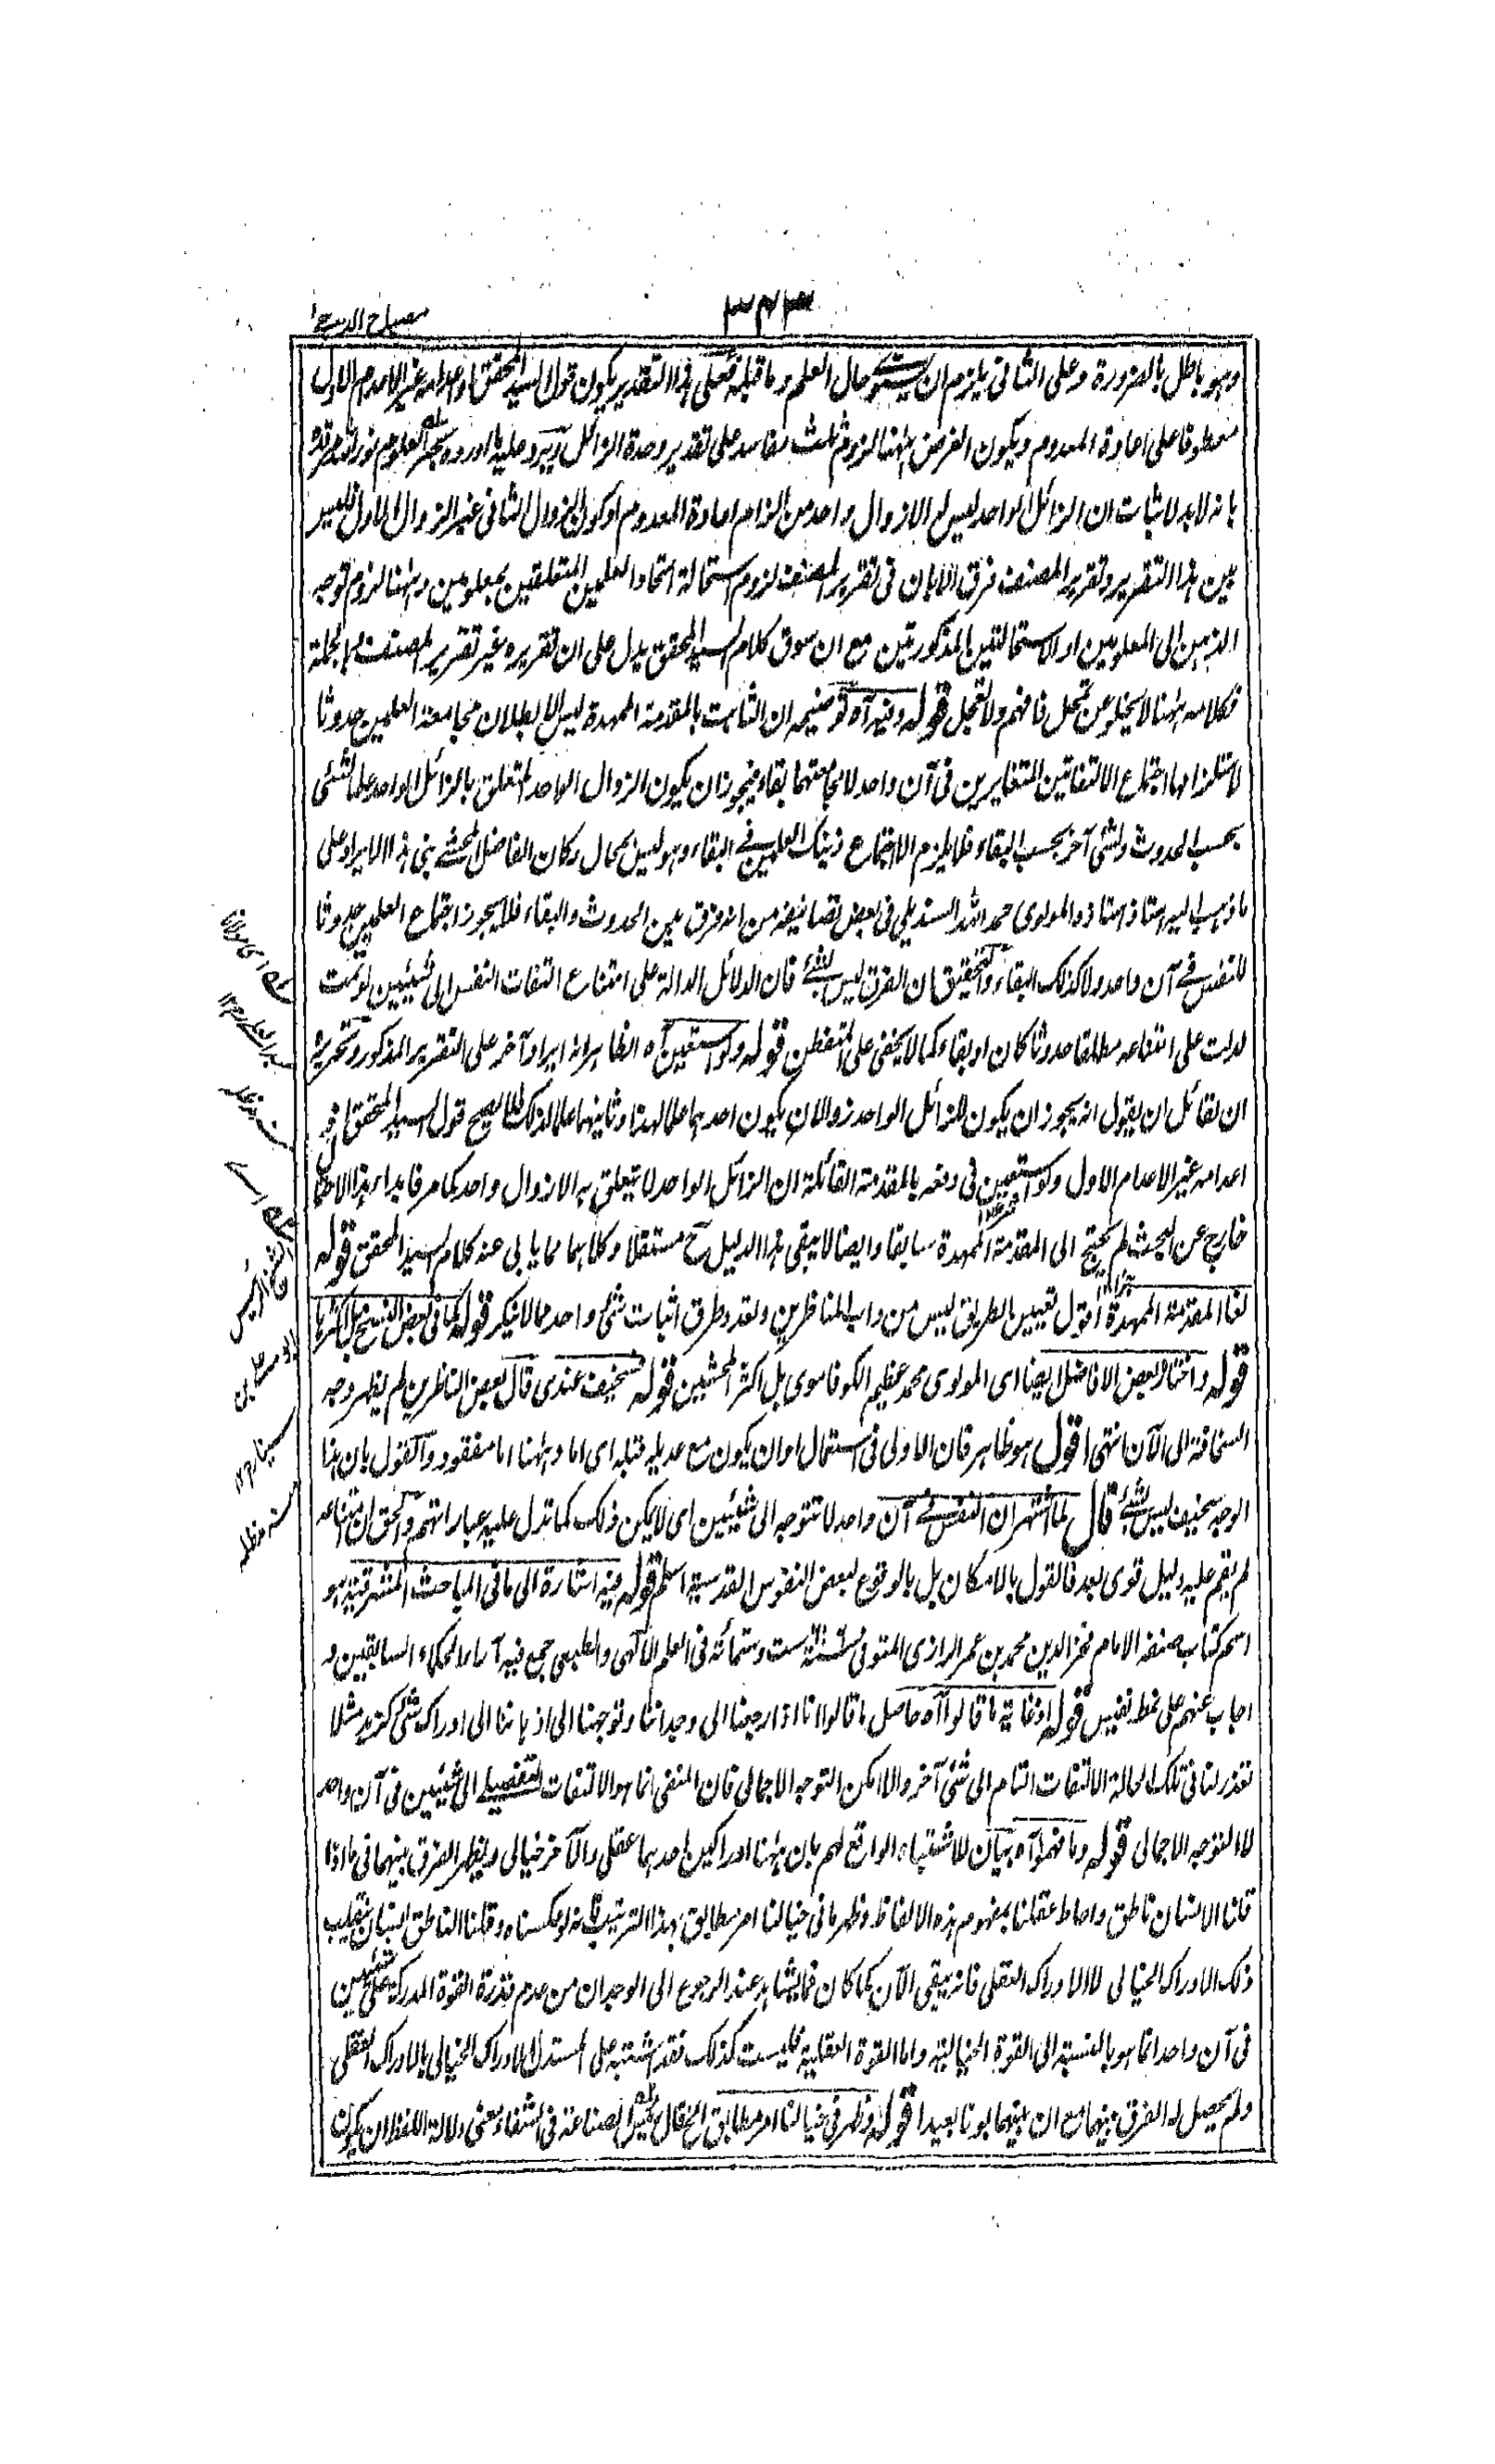 مصباح الدجى
وهو باطل بالضرورة وعلى الثانى يلزم ان يستوى حال العلم وما قبله فعلى هذا التقدير يكون قول السيد المحقق او اعدامه غير الاعدام الاول
معطوفا على اعادة المعدوم ويكون الغرض ههنا لزوم ثلث مفاسد على تقدير وحدة الزائل ويرد عليه ما اورده بحر العلوم نور الله مرقده
بانه لابد لاثبات ان الزائل الواحد ليس له الا زوال واحد من الزام اعادة المعدوم او كون الزوال الثانى غير الزوال الاول فليس
بين هذا التقرير وتقرير المصنف فرق الا بان فى تقرير المصنف لزوم استحالة اتحاد العلمين المتعلقين بمعلومين وههنا لزوم توجه
الذهن الى المعلومين او الاستحالتين المذكورتين مع ان سوق كلام السيد المحقق يدل على ان تقريره غير تقرير المصنف وبالجملة
فكلامه ههنا لا يخلو عن تمحل فافهم ولا تعجل قوله وفيه آه توضيحه ان الثابت بالمقدمة الممهدة ليس الا بطلان مجامعة العلمين حدوثا
لاستلزامها اجتماع الالتفاتين المتغايرين فى آن واحد لا مجامعتهما بقاء فيجوز ان يكون الزوال الواحد المتعلق بالزائل الواحد علما لشئى
بحسب الحدوث ولشئى آخر بحسب البقاء فلا يلزم الا اجتماع ذينك العلمين فى البقاء وهو ليس بمحال وكان الفاضل المحشى بنى هذا الايراد على
ما ذهب اليه استاذ استاذه المولوى حمد الله السنديلى فى بعض تصانيفه من انه فرق بين الحدوث والبقاء فلا يجوز اجتماع العلمين حدوثا
للنفس فى آن واحد ولا كذلك البقاء والتحقيق ان الفرق ليس بشئ فان الدلائل الدالة على امتناع التفات النفس الى شيئين لو تمت
لدلت على امتناعه مطلقا حدوثا كان او بقاء كما لا يخفى على المتفطن قوله ولو استعين آه الظاهر انه ايراد آخر على التقرير المذكور وتحريره
ان لقائل ان يقول انه يجوز ان يكون للزائل الواحد زوالان يكون احدهما علما لهذا وثانيهما علما لذاك فلا يصح قول السيد المحقق او
اعدامه غير الاعدام الاول ولو استعين فى دفعه بالمقدمة القائلة ان الزائل الواحد لا يتعلق به الا زوال واحد كما مر
خارج عن البحث لم يحتج الى المقدمة الممهدة سابقا وايضا لا يبقى هذا الدليل ح مستقلا وكلاهما مما يابى عنه كلام السيد المحقق قوله
لغا المقدمة الممهدة اقول تعيين الطريق ليس من داب المناظرين وتعدد طرق اثبات شئى واحد مما لا ينكر قوله كما فى بعض النسخ بل اكثرها
قوله واختاره بعض الافاضل ايضا اى المولوى محمد عظيم الكوفاموى بل اكثر المحشين قوله سخيف عندى قال بعض الناظرين لم يظهر وجه
السخافة الى الآن انتهى اقول هو ظاهر فان الاولى فى استعمال او ان يكون مع عديله قبله اى اما وههنا اما مفقود والقول بان هذا
الوجه سخيف ليس بشئ قال لما اشتهر ان النفس فى آن واحد لا تتوجه الى شيئين اى لا يمكن ذلك كما تدل عليه عباراتهم والحق ان امتناعه
لم يقم عليه دليل قوى بعد فالقول بالامكان بل بالوقوع لبعض النفوس القدسية اسلم قوله فيه اشارة الى ما فى المباحث المشرقية هو
اسم كتاب صنفه الامام فخر الدين محمد بن عمر الرازى المتوفى سنة ست وستمائة فى العلم الالهى والطبعى جمع فيه آراء الحكماء السابقين و
اجاب عنهم على نمط نفيس قوله اذ غاية ما قالوا آه حاصل ما قالوا انا اذا رجعنا الى وجداننا وتوجهنا الى اذهاننا الى ادراك شئى كزيد مثلا
تعذر لنا فى تلك الحالة الالتفات التام الى شئى آخر والا امكن التوجه الاجمالى فان المنفى انما هو الالتفات التفصيلى الى شيئين فى آن واحد
لا التوجه الاجمالى قوله وما فهموا آه بيان للاشتباه الواقع لهم بان ههنا ادراكين احدهما عقلى والآخر خيالى ويظهر الفرق بينهما فى ما اذا
قلنا الانسان ناطق واحاط عقلنا بمفهوم هذه الالفاظ وظهر ما فى خيالنا امر مطابق لهذا الترتيب فانه لو عكسناه وقلنا الناطق انسان ينقلب
ذلك الادراك الخيالى لا الادراك العقلى فانه يبقى الآن كما كان فما يشاهد عند الرجوع الى الوجدان من عدم قدرة القوة المدركة على شيئين
فى آن واحد انما هو بالنسبة الى القوة الخيالية واما القوة العقلية فليست كذلك فقد اشتبه على المستدل الادراك الخيالى بالادراك العقلى
ولم يحصل له الفرق بينهما مع ان بينهما بونا بعيدا قوله وظهر فى خيالنا امر مطابق الخ قال رئيس الصناعة فى الشفاء معنى دلالة اللفظ ان يكون
الشيخ الرئيس
ابو على بن
سينا ١٢
منه مدظله